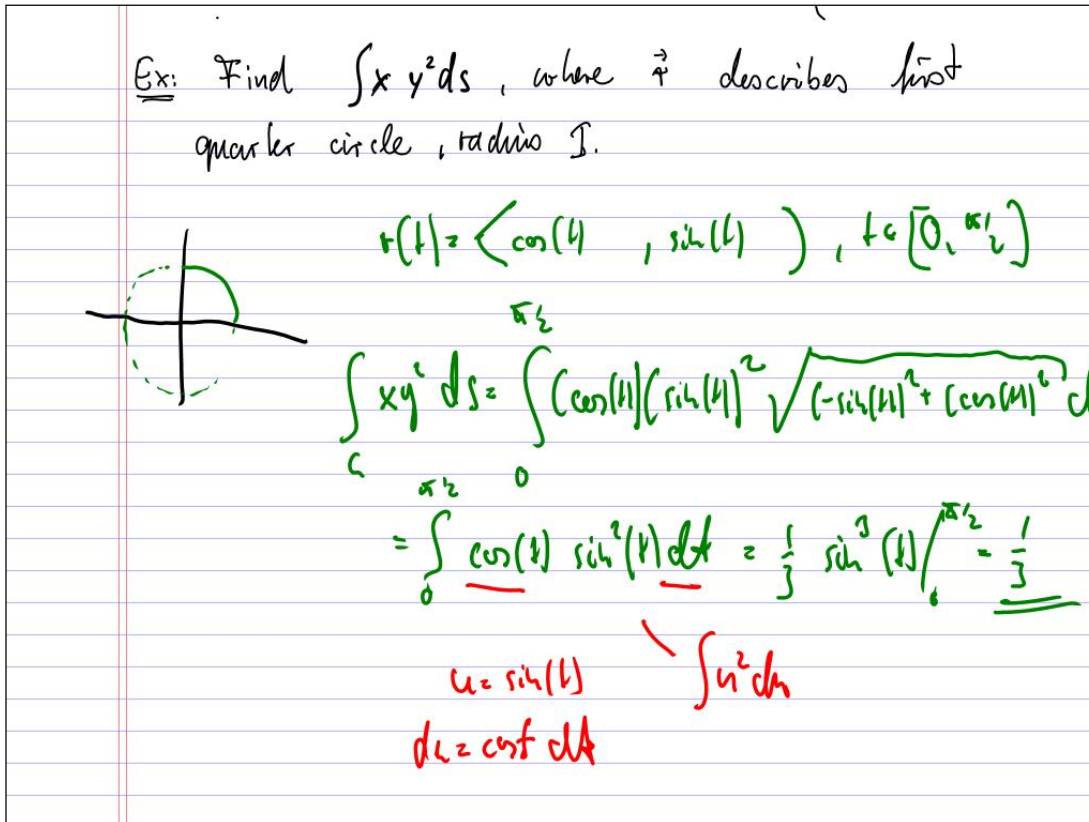 Ex: Find ∫ x y² ds, where r⃗ describes first
quarter circle, radius 1.
r(t) = ⟨cos(t), sin(t)⟩, t ∈ [0, π/2]
∫_C xy² ds = ∫_0^{π/2} (cos(t))(sin(t))² √((-sin(t))² + (cos(t))²) d
= ∫_0^{π/2} cos(t) sin²(t) dt = 1/3 sin³(t) |_0^{π/2} = 1/3
u = sin(t) ∫u² du
du = cos t dt